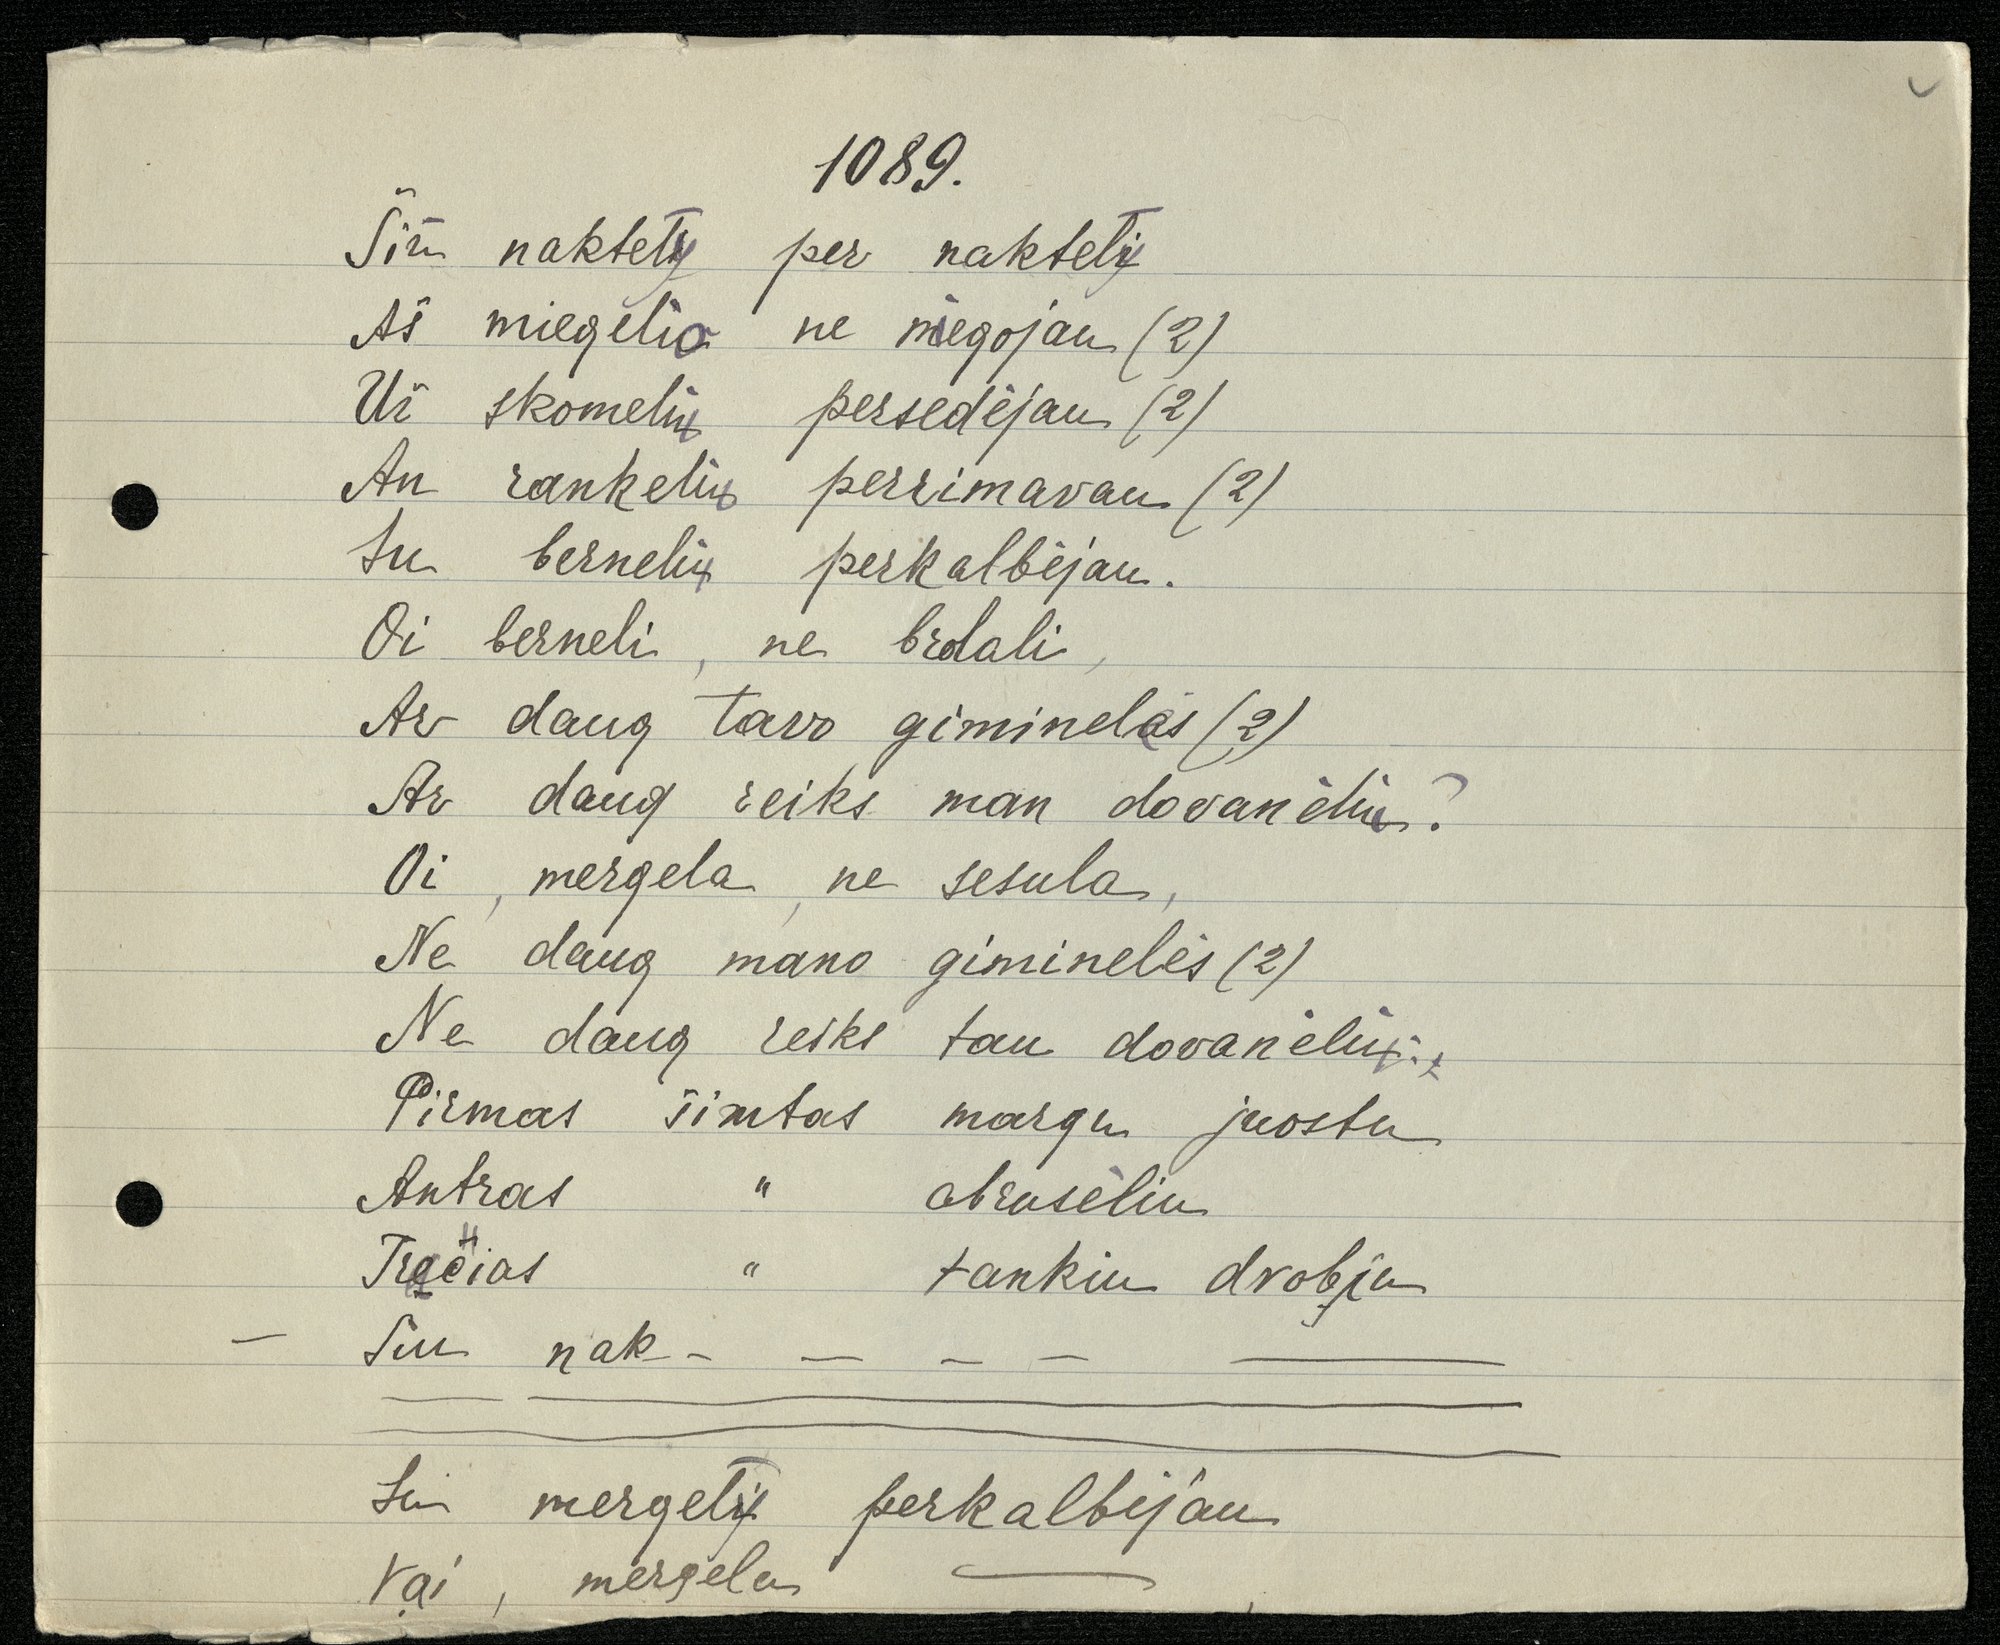 1089.
Šiu naktelį per naktelį
Aš miegelio ne miegojau (2)
Už skomelių persedėjau (2)
An rankelių perrimavau (2)
Su berneliu perkalbėjau.
Oi berneli, ne brolali,
Ar daug tavo giminelės (2)
Ar daug reiks man dovanėliu?
Oi, mergela, ne sesula,
Ne daug mano giminelės (2)
Ne daug reiks tau dovanėlių.
Pirmas šimtas margu juostu
Antras " abrusėliu
Trečias " tankiu drobju
– Šiu nak - – – – —
Su mergelį perkalbėjau
Vai, mergela —